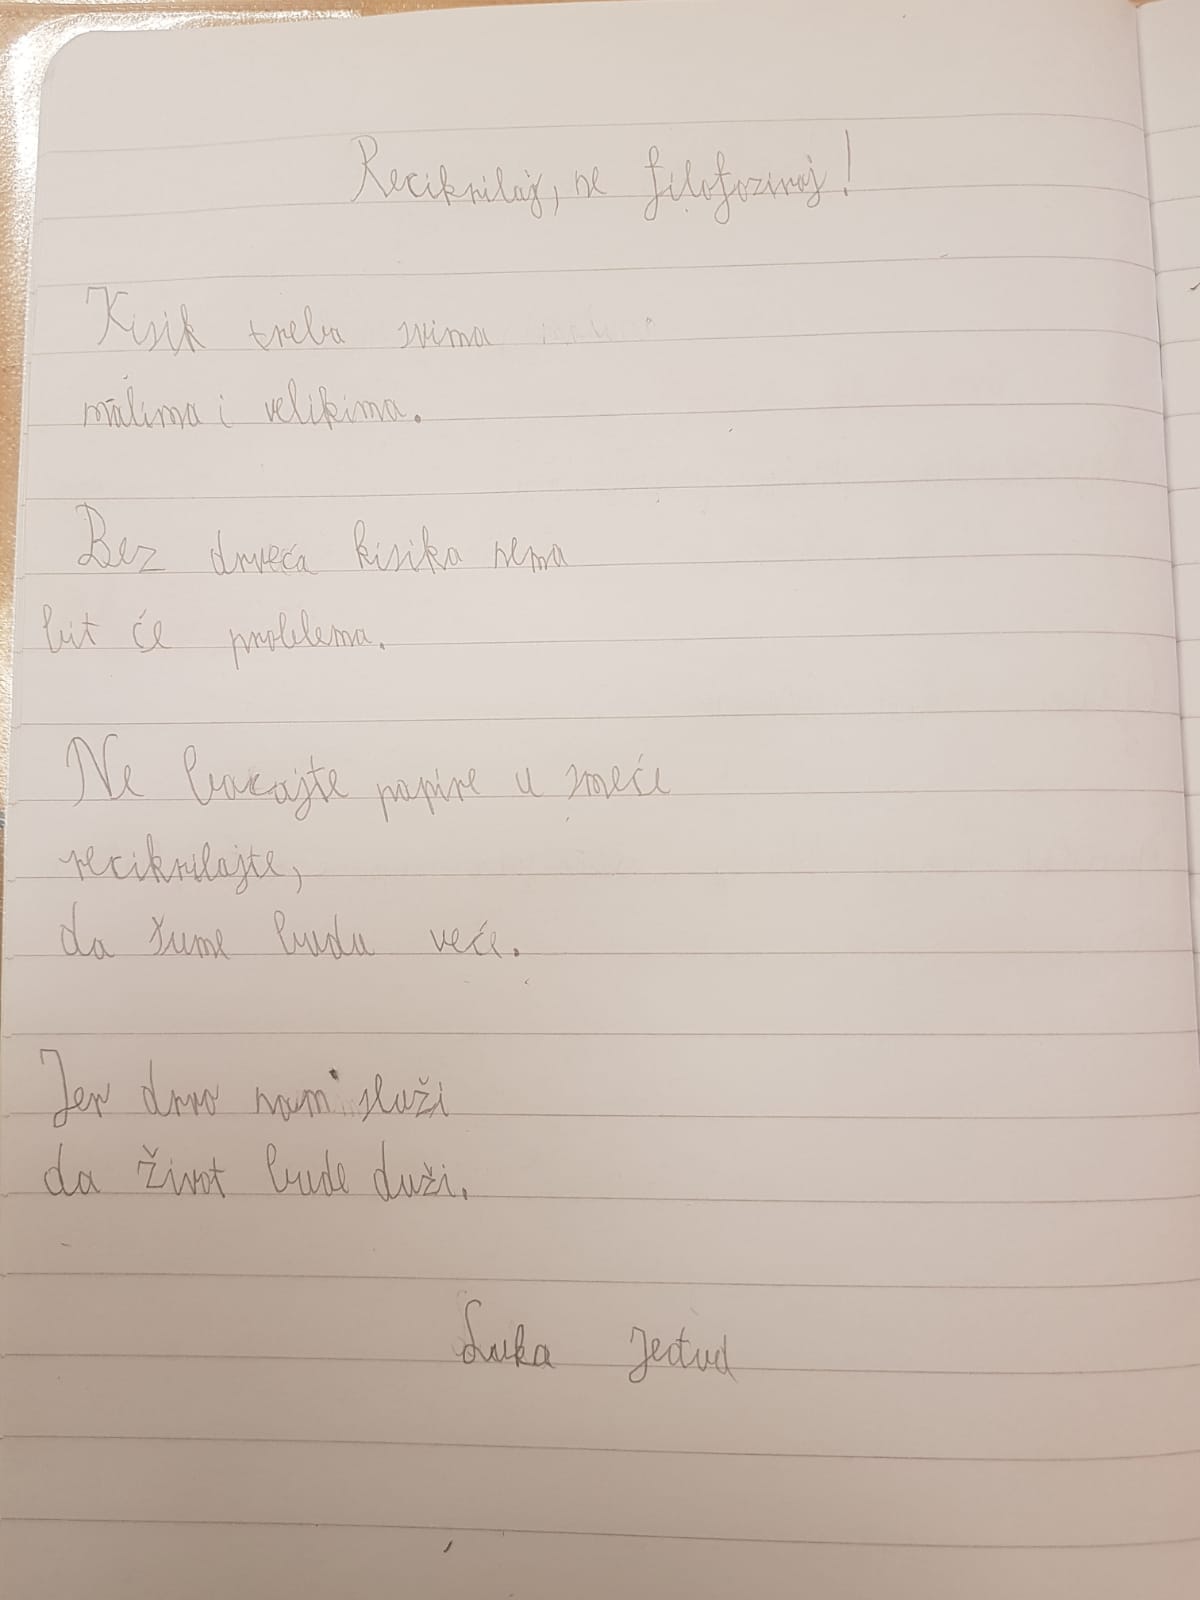 Reciknilaj, ne filofoziraj!
Kisik treba svima
malima i velikima.
Bez drveća kisika nema
bit će problema.
Ne bacajte papire u smeće
reciknilajte,
da šume budu veće.
Jer drvo nam služi
da život bude duži.
Luka Jeđud